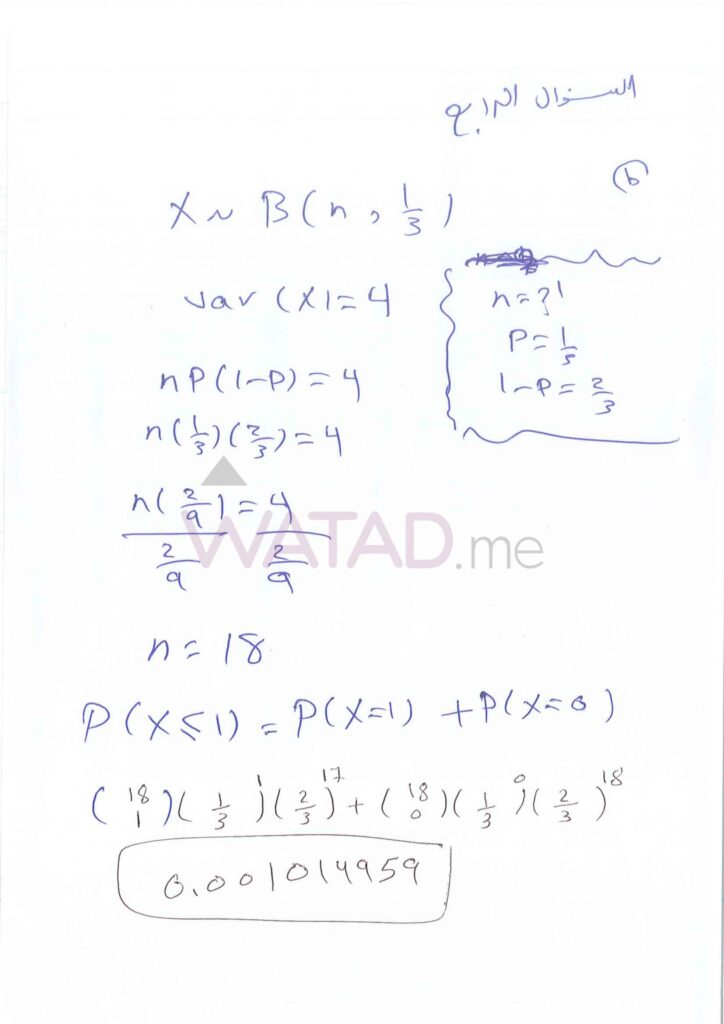 السؤال الرابع
(b)
X ~ B(n, 1/3)
var(X) = 4
n = ?
P = 1/3
1-P = 2/3
nP(1-P) = 4
n(1/3)(2/3) = 4
n(2/9) = 4
2/9 2/9
WATAD.me
n = 18
P(X≤1) = P(X=1) + P(X=0)
(18 1)(1/3)^1(2/3)^17 + (18 0)(1/3)^0(2/3)^18
0.001014959